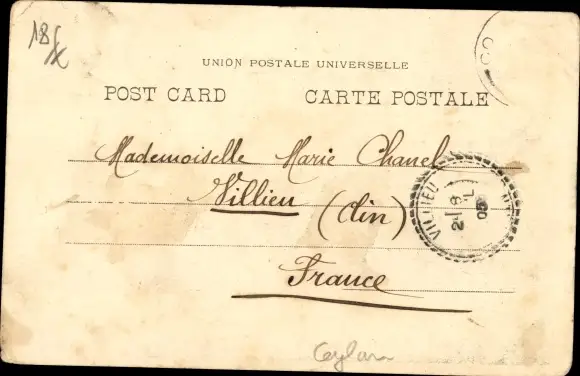 18/X
CO
UNION POSTALE UNIVERSELLE
POST CARD CARTE POSTALE
Mademoiselle Marie Chanel
Villieu (Ain)
France
VILLIEU
05
Ceylan